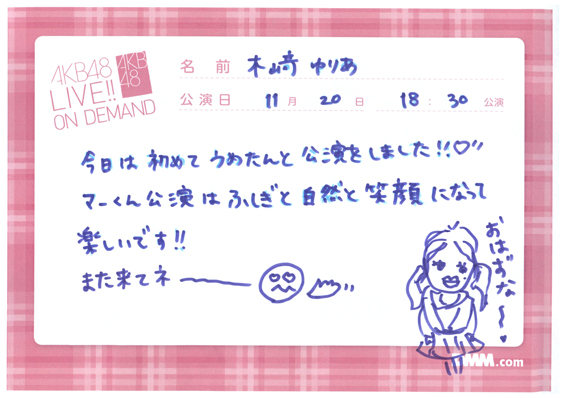 AKB48
LIVE!!
ON DEMAND
AKB
48
名 前 木﨑 ゆりあ
公演日 11月 20日 18:30公演
今日は初めてうめたんと公演をしました!!♡
マーくん公演はふしぎと自然と笑顔になって
楽しいです!!
また来てネ
おはずな〜
MM.com